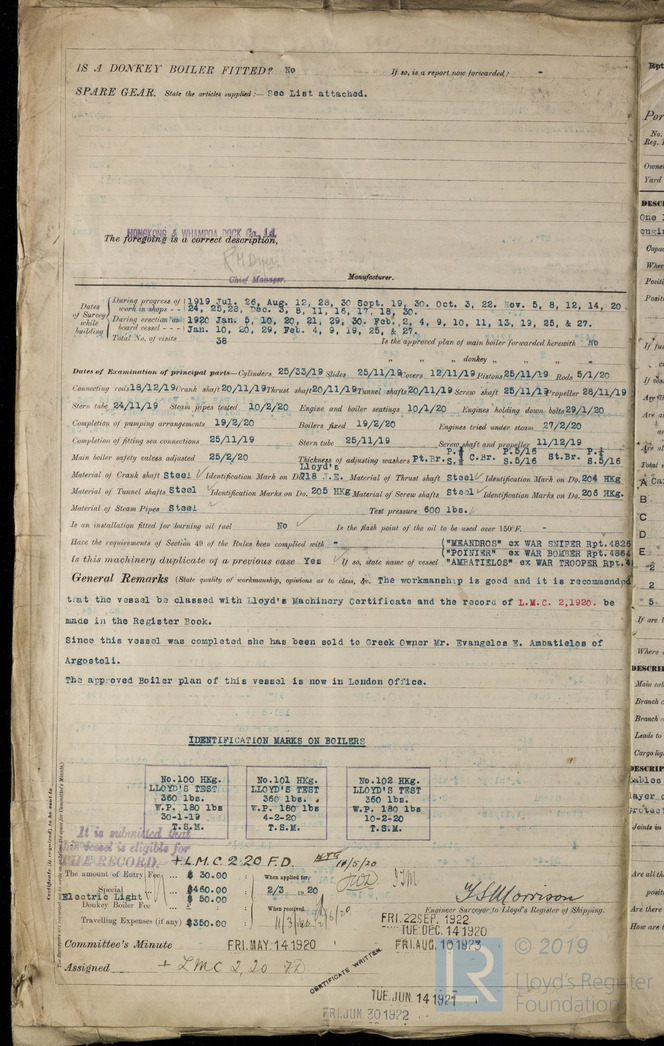 IS A DONKEY BOILER FITTED? No If so, is a report now forwarded? -
SPARE GEAR. State the articles supplied :— See List attached.
HONGKONG & WHAMPOA DOCK Co., Ld.
The foregoing is a correct description,
Chief Manager. Manufacturer.
Dates of Survey while building
During progress of work in shops -- 1919 Jul. 26, Aug. 12, 28, 30 Sept. 19, 30. Oct. 3, 22. Nov. 5, 8, 12, 14, 20
24, 25, 28, Dec. 3, 8, 11, 16, 17, 18, 30.
During erection on board vessel --- 1920 Jan. 5, 10, 20, 21, 29, 30. Feb. 2, 4, 9, 10, 11, 13, 19, 25, & 27.
Jan. 10, 20, 29, Feb. 4, 9, 19, 25, & 27.
Total No. of visits 38 Is the approved plan of main boiler forwarded herewith No
" " " donkey " " "
Dates of Examination of principal parts—Cylinders 25/33/19 Slides 25/11/19 Covers 12/11/19 Pistons 25/11/19 Rods 5/1/20
Connecting rods 18/12/19 Crank shaft 20/11/19 Thrust shaft 20/11/19 Tunnel shafts 20/11/19 Screw shaft 25/11/19 Propeller 28/11/19
Stern tube 24/11/19 Steam pipes tested 10/2/20 Engine and boiler seatings 10/1/20 Engines holding down bolts 29/1/20
Completion of pumping arrangements 19/2/20 Boilers fixed 19/2/20 Engines tried under steam 27/2/20
Completion of fitting sea connections 25/11/19 Stern tube 25/11/19 Screw shaft and propeller 11/12/19
Main boiler safety valves adjusted 25/2/20 Thickness of adjusting washers Pt.Br. C.Br. P.5/16 S.5/16 St.Br. S.5/16
Material of Crank shaft Steel Identification Mark on Do. Lloyd's 718 Material of Thrust shaft Steel Identification Mark on Do. 204 HKg
Material of Tunnel shafts Steel Identification Marks on Do. 205 HKg Material of Screw shafts Steel Identification Marks on Do. 206 HKg.
Material of Steam Pipes Steel Test pressure 600 lbs.
Is an installation fitted for burning oil fuel No Is the flash point of the oil to be used over 150°F. -
Have the requirements of Section 49 of the Rules been complied with - ("MEANDROS" ex WAR SNIPER Rpt.4826
("POINIER" ex WAR BOMBER Rpt.4864
Is this machinery duplicate of a previous case Yes If so, state name of vessel "AMBATIELOS" ex WAR TROOPER Rpt.
General Remarks (State quality of workmanship, opinions as to class, &c. The workmanship is good and it is recommended
that the vessel be classed with Lloyd's Machinery Certificate and the record of L.M.C. 2,1920. be
made in the Register Book.
Since this vessel was completed she has been sold to Greek Owner Mr. Evangelos E. Ambatielos of
Argostoli.
The approved Boiler plan of this vessel is now in London Office.
IDENTIFICATION MARKS ON BOILERS
No.100 HKg. No.101 HKg. No.102 HKg.
LLOYD'S TEST LLOYD'S TEST LLOYD'S TEST
360 lbs. 360 lbs. 360 lbs.
W.P. 180 lbs W.P. 180 lbs W.P. 180 lbs
30-1-19 4-2-20 10-2-20
T.S.M. T.S.M. T.S.M.
It is submitted that
this vessel is eligible for
THE RECORD. + L.M.C. 2-20 F.D.
The amount of Entry Fee ... $ 30.00 When applied for,
Special $460.00 2/3 to 20
Electric Light $ 50.00
Donkey Boiler Fee When received,
Travelling Expenses (if any) $350.00
T S Morrison
Engineer Surveyor to Lloyd's Register of Shipping.
FRI. 22 SEP. 1922
TUE. DEC. 14 1920
Committee's Minute FRI. MAY. 14 1920 FRI. AUG. 10 1923
Assigned + LMC 2,20 FD
CERTIFICATE WRITTEN
TUE. JUN. 14 1921
FRI. JUN. 30 1922
© 2019
LR
Lloyd's Register
Foundation